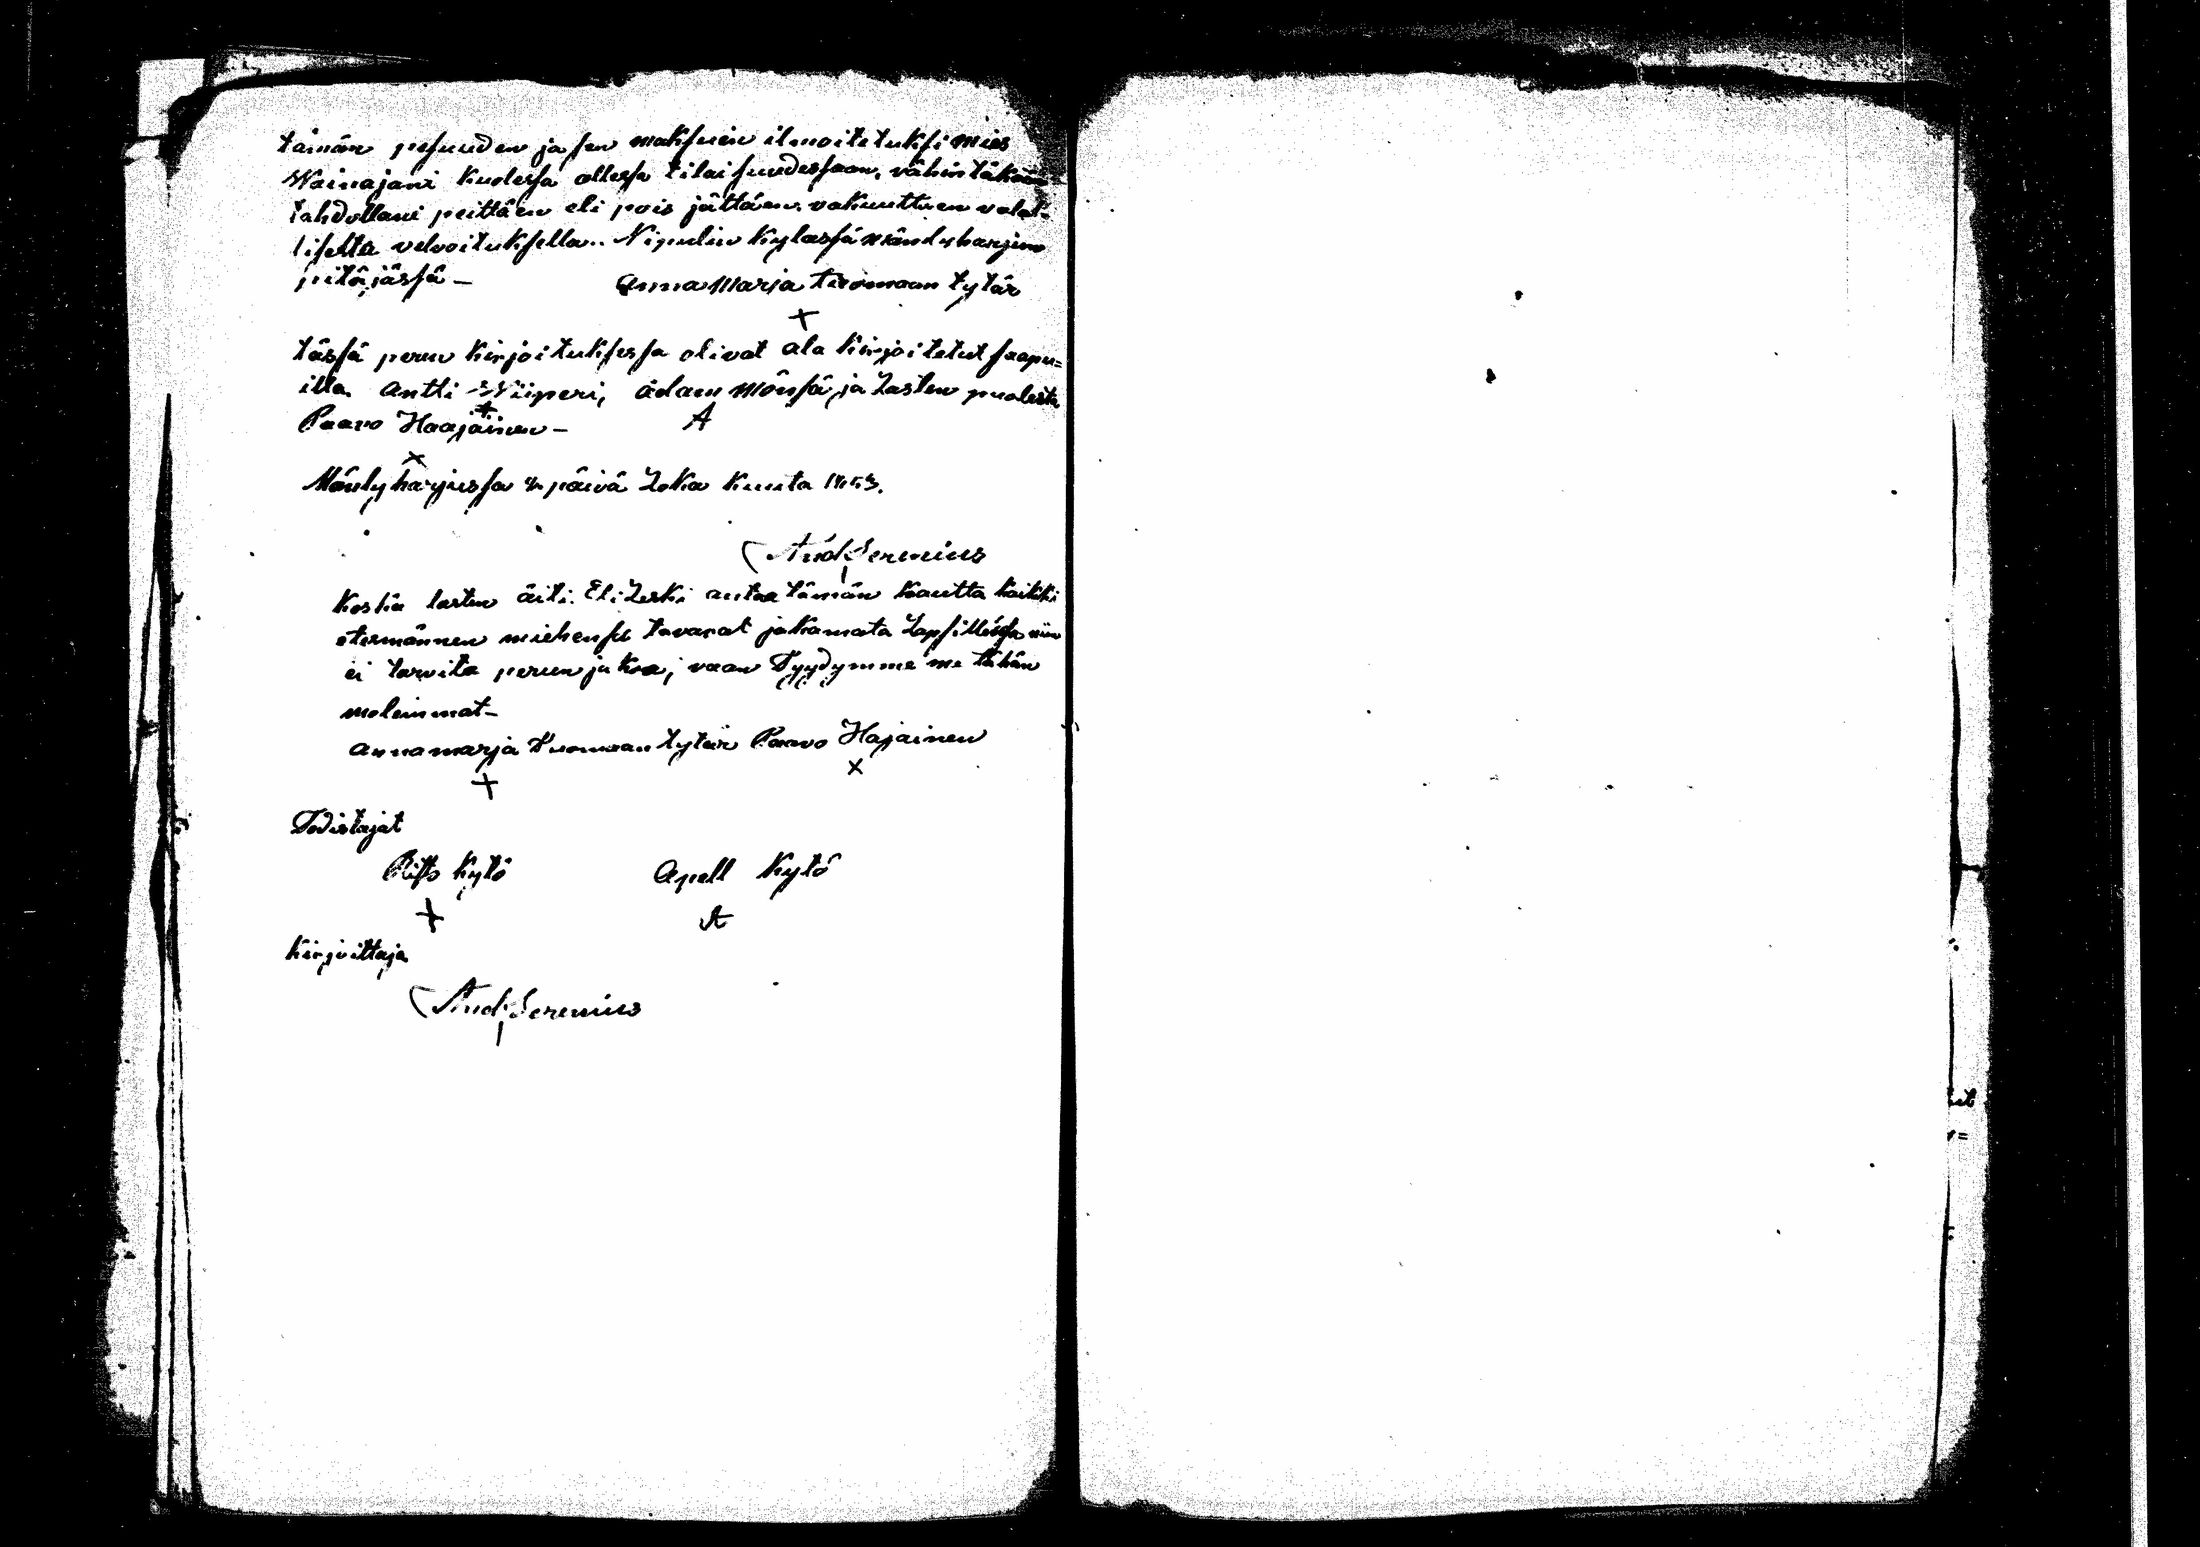 tämän pesuuden ja sen maksuin ilmoitetuksi mies
Wainajani kuolessa ollessa tilaisuudessaan, vähintäkään
tahdollani peittäen eli pois jättäen, vakuuttaen valal-
lisella velvoituksella.. Nipulin kylässä mändyharjun
pitäjässä –
Anna Marja Tuomaan tytär
+
tässä perun kirjoituksessa olivat ala kirjoitetut saapu=
illa Antti Wiiperi, Adam Mönsä, ja Lasten puolesta
+
A
Paavo Haajainen –
x
Mändyharjussa päivä Loka kuuta 1853.
And Serenius
Koska lasten äiti Eli Leski antaa tämän kautta kaikki
etesmännen miehensä tavarat jakamata Lapsillensa niin
ei tarvita perun jakoa, vaan Tyydymme me tähän
molemmat–
Annamarja Tuomaan tytär Paavo Hajainen
+ x
Todistajat
Kytö Apell Kytö
+ A
Kirjoittaja
And Serenius